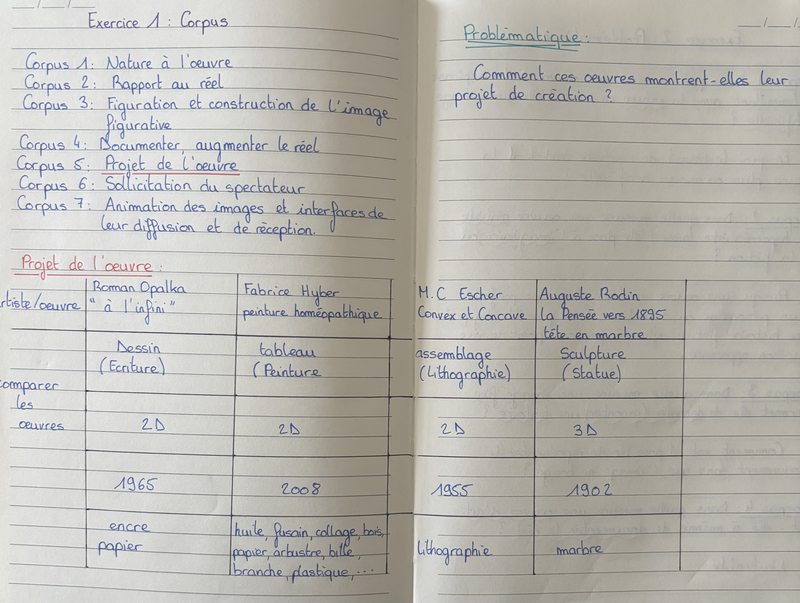 Exercice 1 : Corpus
Corpus 1: Nature à l'oeuvre
Corpus 2: Rapport au réel
Corpus 3: Figuration et construction de l'image
figurative
Corpus 4: Documenter, augmenter le réel
Corpus 5: Projet de l'oeuvre
Corpus 6: Sollicitation du spectateur
Corpus 7: Animation des images et interfaces de
leur diffusion et de réception.
Projet de l'oeuvre :
rtiste/oeuvre
Roman Opalka
"à l'infini"
Fabrice Hyber
peinture homéopathique
Dessin
(Ecriture)
tableau
(Peinture
comparer
les
oeuvres
2D
2D
1965
2008
encre
papier
huile, fusain, collage, bois,
papier, arbustre, bille,
branche, plastique, ...
Problématique :
Comment ces oeuvres montrent-elles leur
projet de création ?
M.C Escher
Convex et Concave
Auguste Rodin
la Pensée vers 1895
tête en marbre
assemblage
(Lithographie)
Sculpture
(Statue)
2D
3D
1955
1902
lithographie
marbre